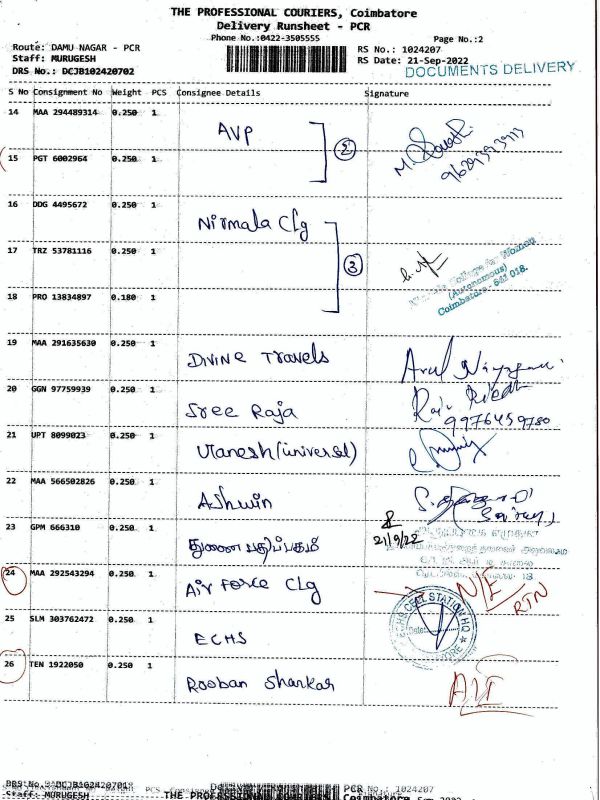 THE PROFESSIONAL COURIERS, Coimbatore
Delivery Runsheet - PCR
Phone No.:0422-3505555
Page No.:2
Route: DAMU NAGAR - PCR
RS No.: 1024207
Staff: MURUGESH
RS Date: 21-Sep-2022
DRS No.: DCJB102420702
DOCUMENTS DELIVERY
S No Consignment No Weight PCS Consignee Details Signature
14 MAA 294489314 0.250 1
AVP
2
M.
9629393913
15 PGT 6002964 0.250 1
16 DDG 4495672 0.250 1
Nirmala Clg
17 TRZ 53781116 0.250 1
3
College for Women
(Autonomous)
Coimbatore - 641 018.
18 PRO 13834897 0.180 1
19 MAA 291635630 0.250 1
Divine Travels
Arul
20 GGN 97759939 0.250 1
Sree Raja
9976459780
21 UPT 8099023 0.250 1
(universal)
22 MAA 566502826 0.250 1
Ashwin
23 GPM 666310 0.250 1
துணை பதிப்பகம்
21/9/22
24 MAA 292543294 0.250 1
Air Force Clg
N/E
RTN
25 SLM 303762472 0.250 1
ECHS
ECHS CELL STATION HQ
26 TEN 1922050 0.250 1
Rooban Shankar
DRS No.
PCR
No.: 1024207
Staff: MURUGESH
THE PROFESSIONAL COURIERS, Coimbatore